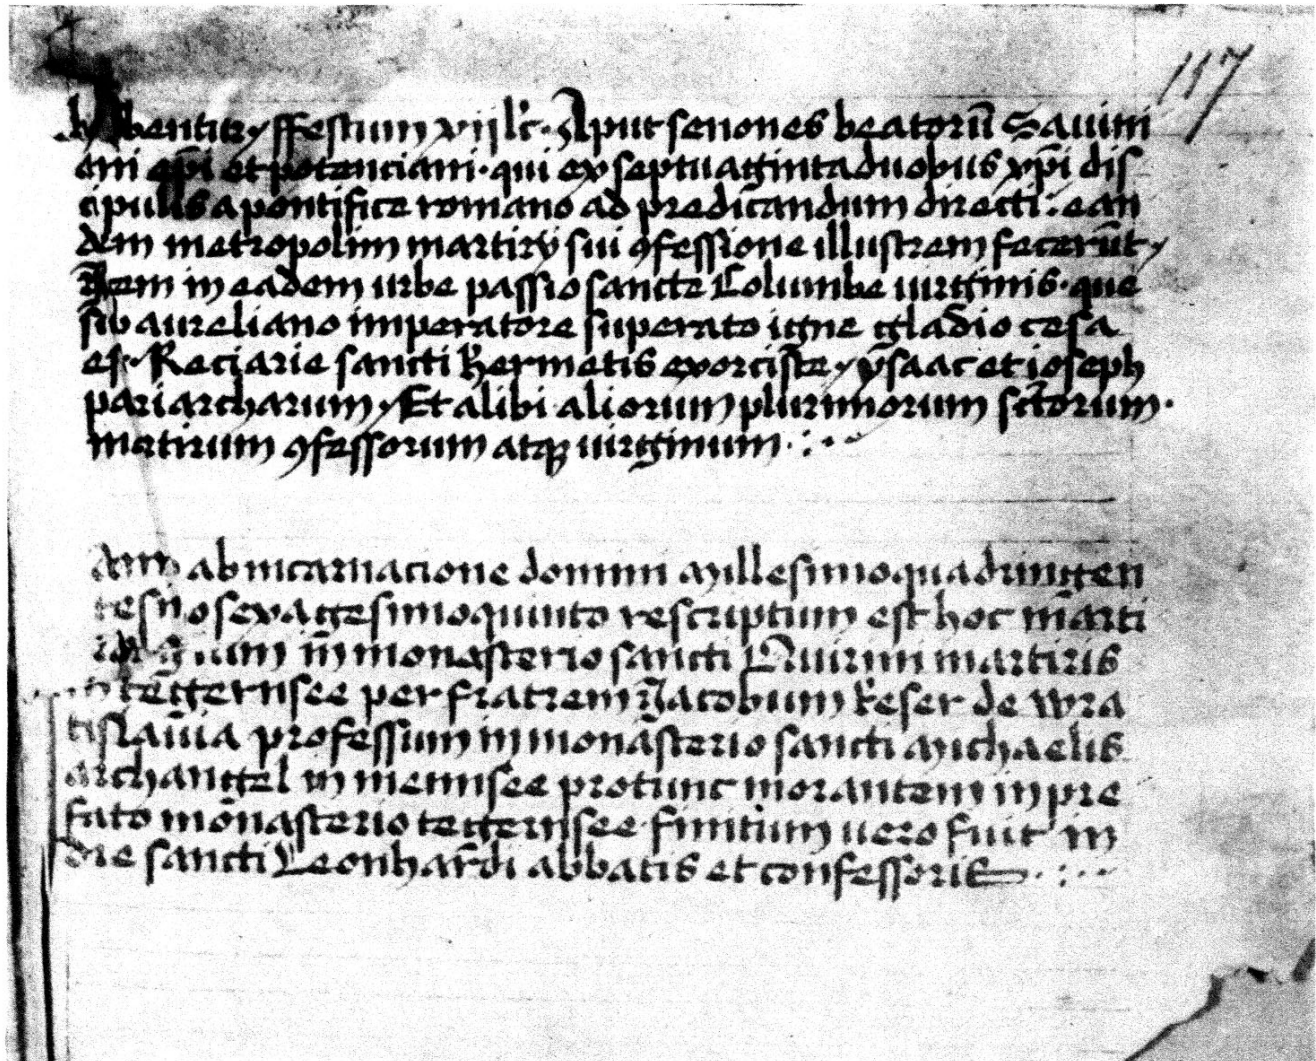 117
habentur ffestium xijkl'. Aput senones beatorū Sauini
eni ep̄i et potenciani. qui ex septuagintaduobus xp̄i dis
cipulis a pontifice romano ad predicandum directi: ean
dem metropolim martirij sui ꝯfessione illustrem fecerūt.
Item in eadem urbe passio sancte Columbe uirginis. que
sub aureliano imperatore superato igne gladio cesa
est. Reciarie sancti hermetis exorciste. ysaac et ioseph
pariarcharum. Et alibi aliorum plurimorum sc̄torum.
martirum ꝯfessorum atqꝫ uirginum
Anno ab incarnacione domini Millesimoquadringen
tesimosexagesimoquinto rescriptum est hoc marti
rologium in monasterio sancti Quirini martiris
tegernsee per fratrem Jacobum keser de wra
tislauia professum in monasterio sancti Michaelis
archangel in mennsee protunc morantem in pre
fato monasterio tegernsee. finitum uero fuit in
die sancti Leonhardi abbatis et confessoris